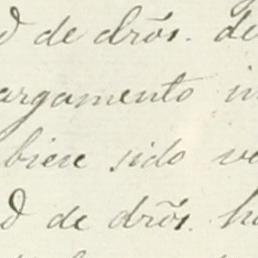 d de drõs. de
argamento in
biese sido ve
d de drõs. ha